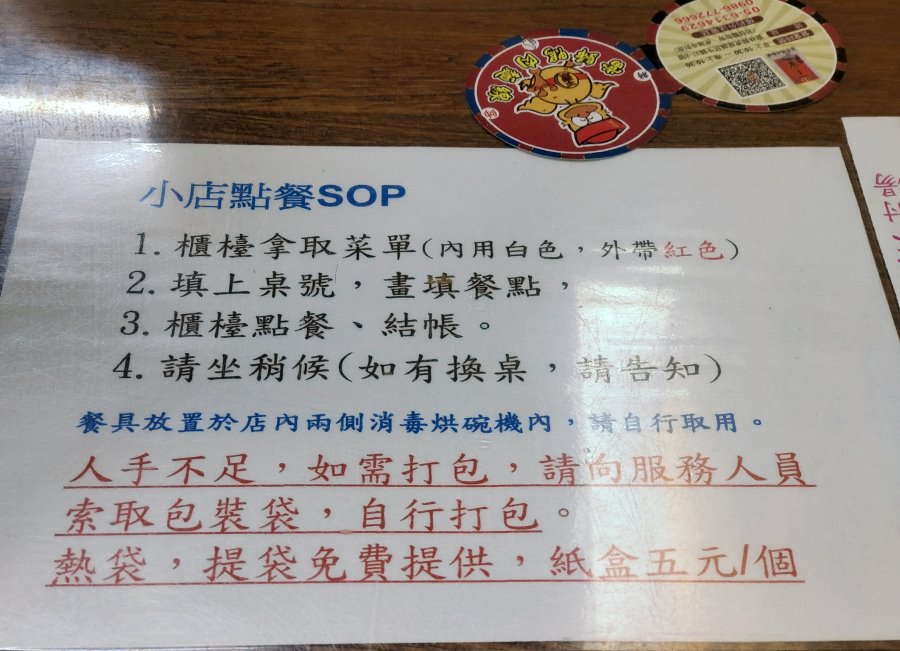 05-6314629
0986-772666
小店點餐SOP
1. 櫃檯拿取菜單(內用白色，外帶紅色)
2. 填上桌號，畫填餐點，
3. 櫃檯點餐、結帳。
4. 請坐稍候(如有換桌，請告知)
餐具放置於店內兩側消毒烘碗機內，請自行取用。
人手不足，如需打包，請向服務人員
索取包裝袋，自行打包。
熱袋，提袋免費提供，紙盒五元/個